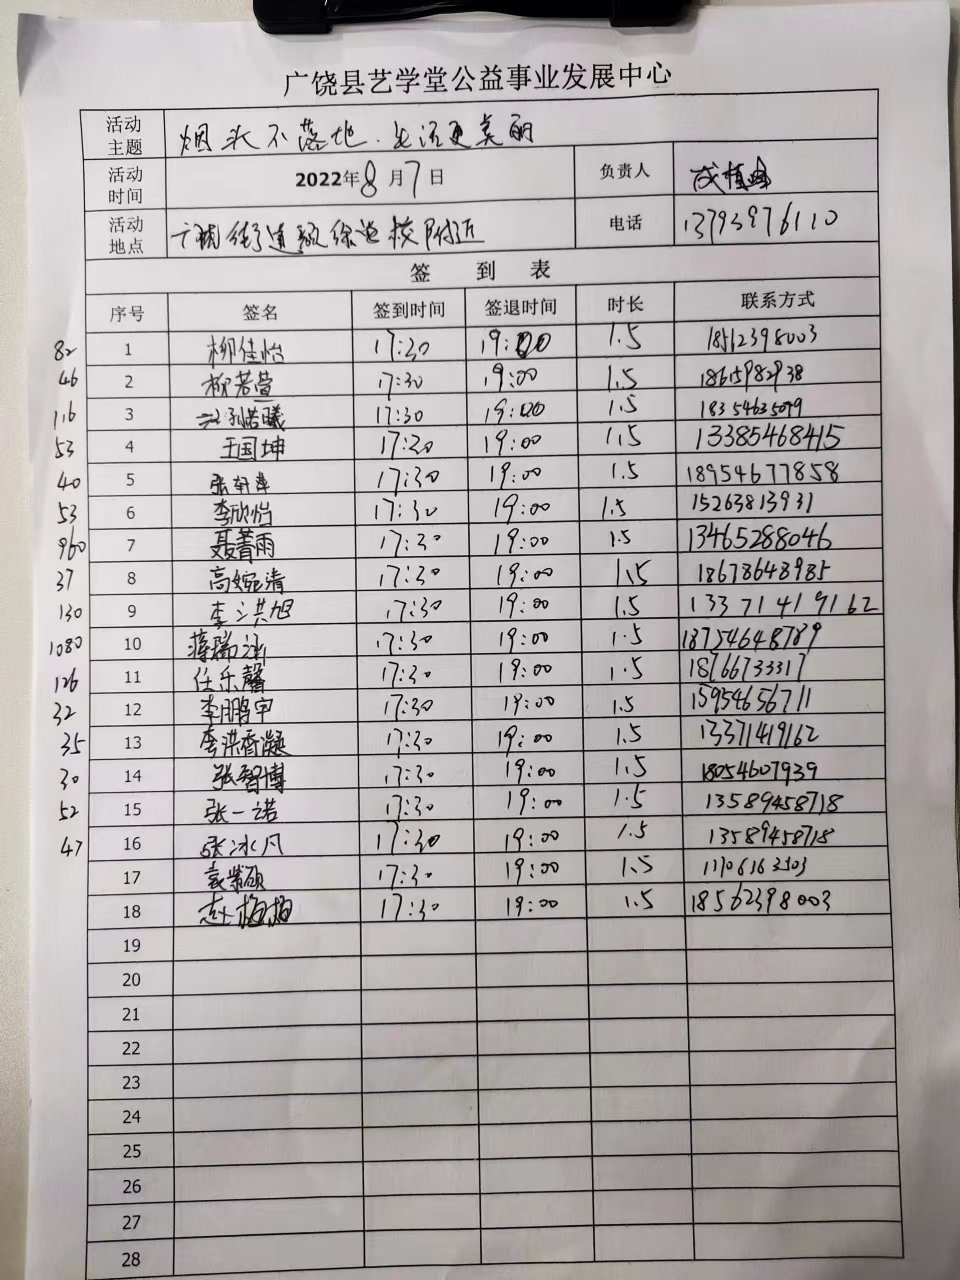 广饶县艺学堂公益事业发展中心
活动主题 烟头不落地.生活更美丽
活动时间 2022年8月7日 负责人
活动地点 附近 电话 13793976110
签 到 表
序号 签名 签到时间 签退时间 时长 联系方式
82 1 柳佳怡 17:30 19:00 1.5 18562398003
46 2 柳若萱 17:30 19:00 1.5 18615982938
116 3 17:30 19:00 1.5 18354635099
53 4 王国坤 17:30 19:00 1.5 13385468415
40 5 17:30 19:00 1.5 18954677858
53 6 李欣怡 17:30 19:00 1.5 15263813931
960 7 聂菁雨 17:30 19:00 1.5 13465288046
37 8 高婉清 17:30 19:00 1.5 18678648985
130 9 17:30 19:00 1.5 13371419162
1080 10 蒋瑞涵 17:30 19:00 1.5 18754648789
126 11 任乐馨 17:30 19:00 1.5 18766733317
32 12 李鹏宇 17:30 19:00 1.5 15954656711
35 13 李洪香凝 17:30 19:00 1.5 13371419162
30 14 张智博 17:30 19:00 1.5 18054607939
52 15 张一诺 17:30 19:00 1.5 13589458718
47 16 张冰凡 17:30 19:00 1.5 13589458718
17 袁紫硕 17:30 19:00 1.5
18 17:30 19:00 1.5 18562398003
19
20
21
22
23
24
25
26
27
28